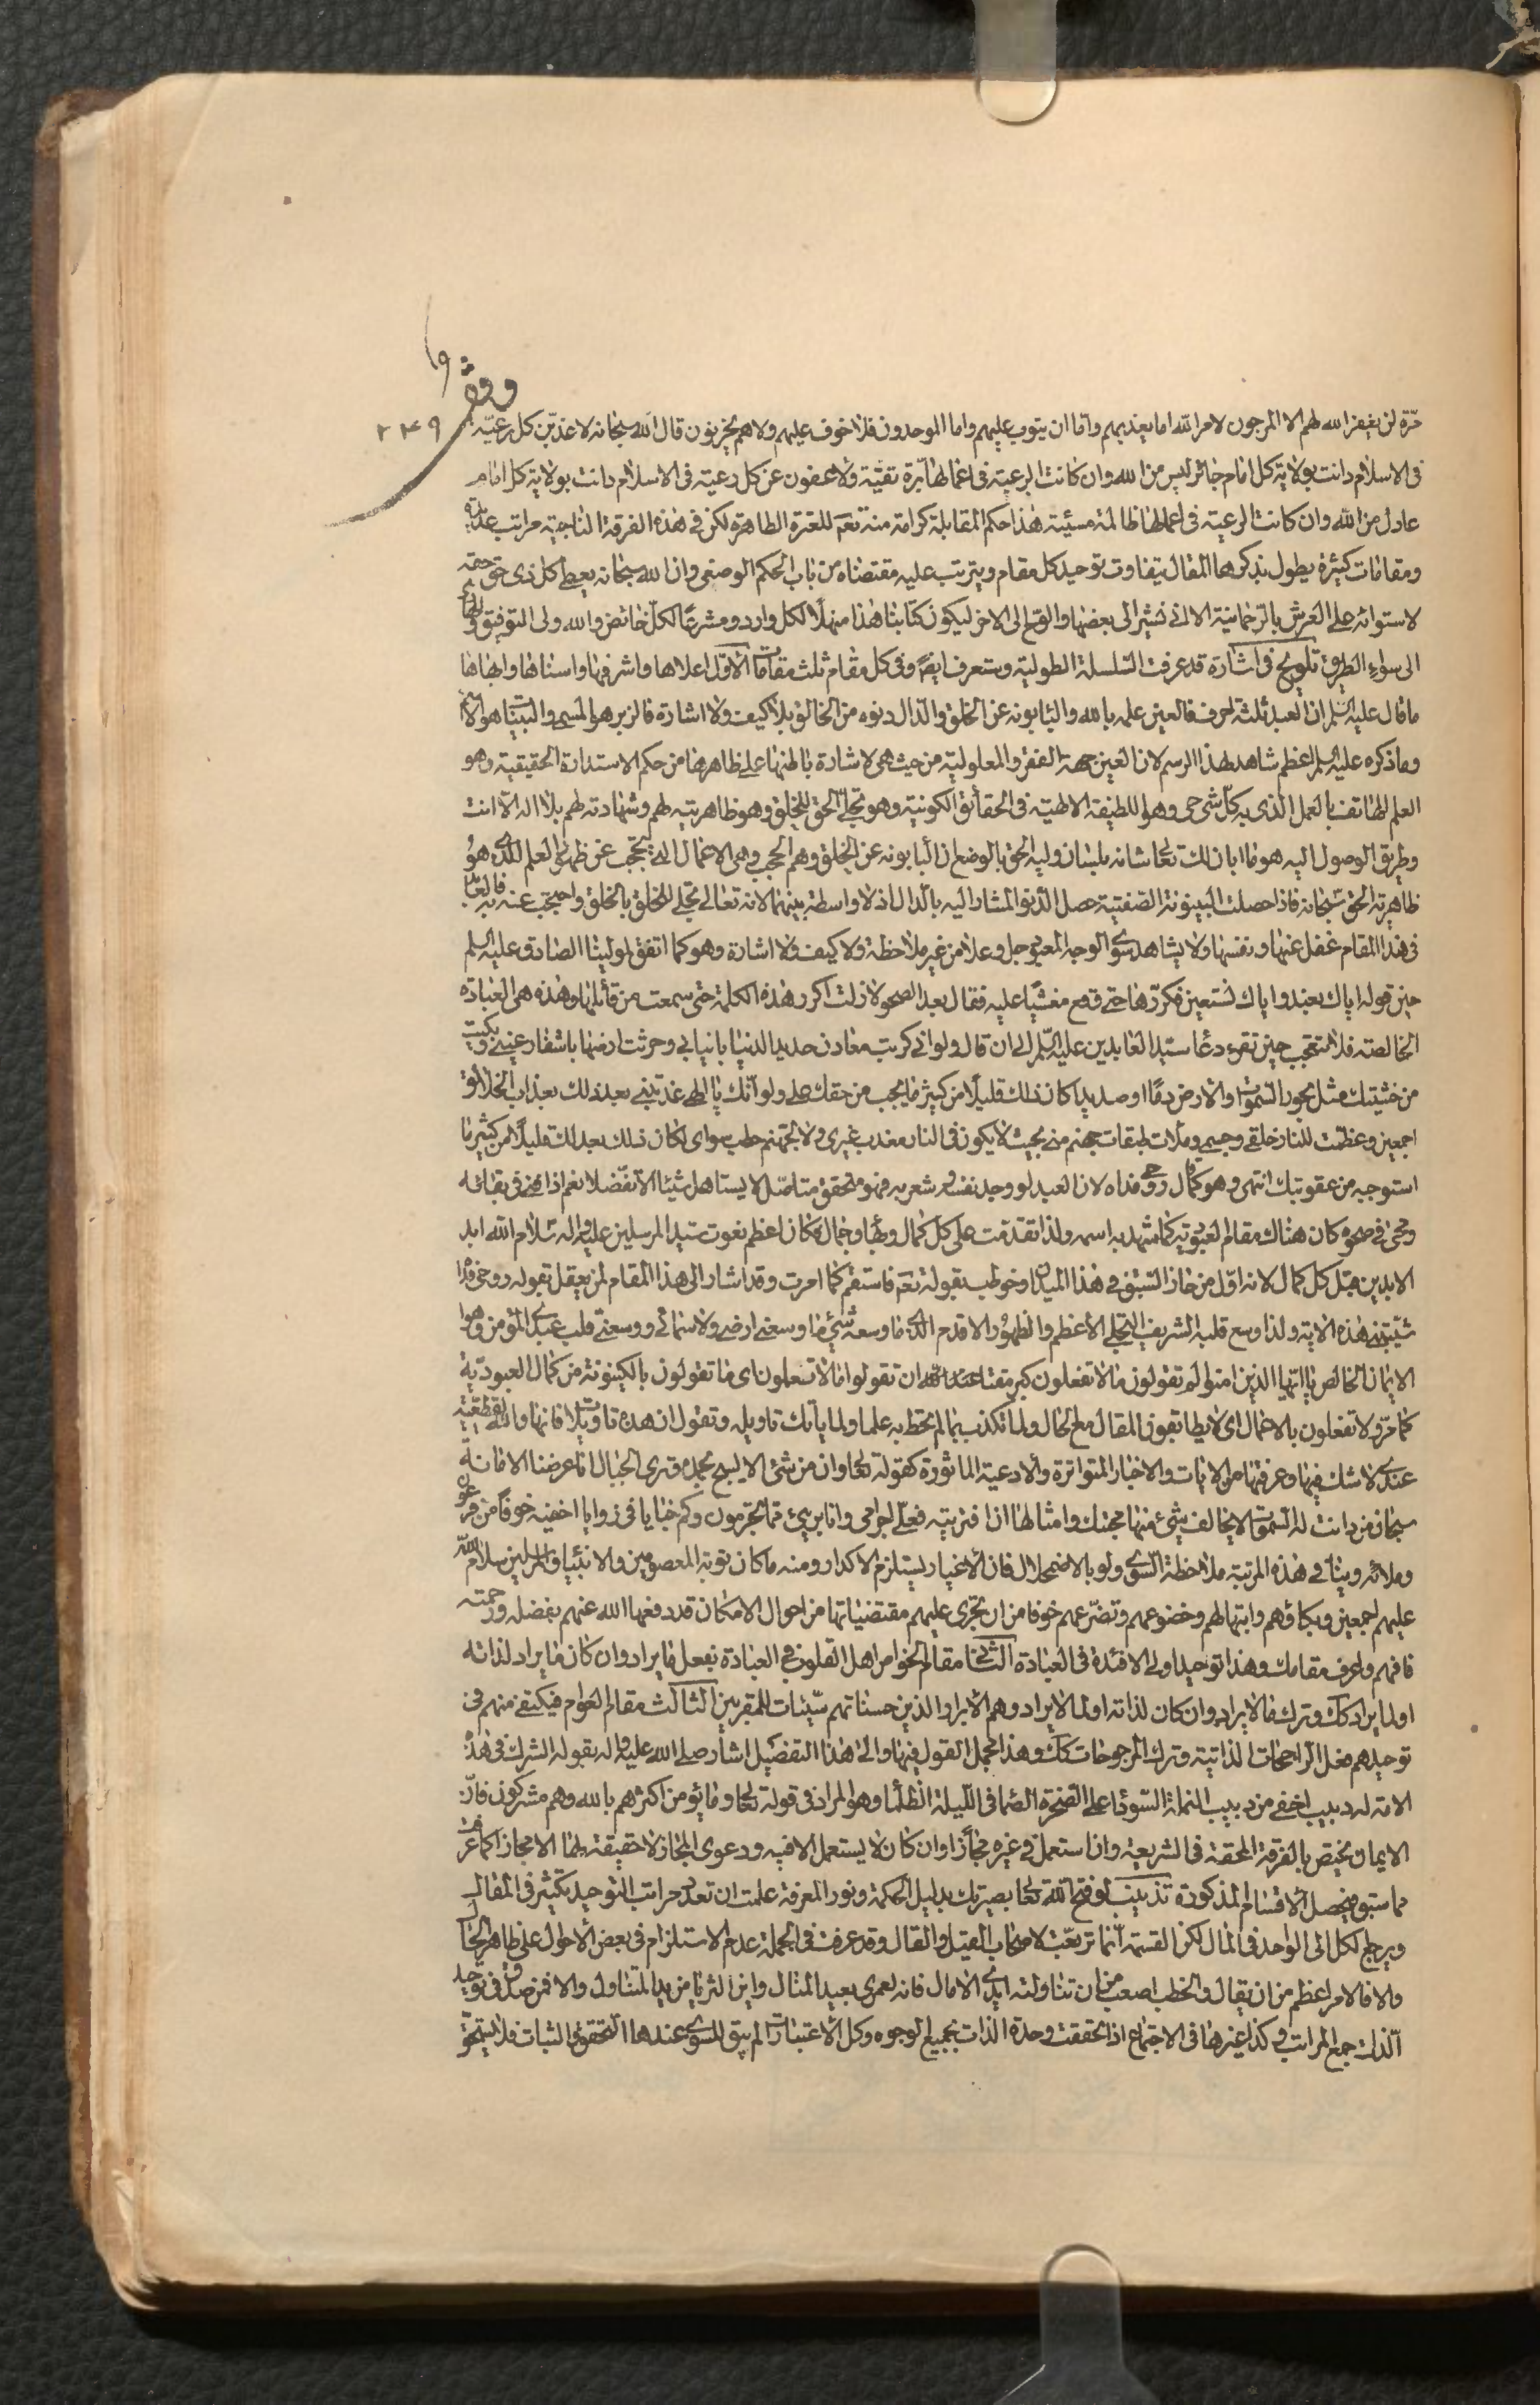 وقف
٢٤٩
مرّة لن يغفر الله لهم الا المرجون لامر الله اما يعذبهم واما ان يتوب عليهم واما الموحدون فلا خوف عليهم ولا هم يحزنون قال الله سبحانه لاعذبن كل رعيّة
فى الاسلام دانت بولاية كل امام جائر ليس من الله وان كانت الرعية فى اعمالها برّة تقيّة ولاعفون عن كل رعية فى الاسلام دانت بولاية كل امام
عادل من الله وان كانت الرعية فى اعمالها ظالمة مسيئة هذا حكم المقابلة كرامة منه تعم للعترة الطاهرة لكن فى هذه الفرقة الناجية مراتب عديدة
ومقامات كثيرة يطول بذكرها المقال يتفاوت توحيد كل مقام ويترتب عليه مقتضاه من باب الحكم الوضعى وان الله سبحانه يعطى كل ذى حق حقه
لاستوائه على العرش بالرحمانية الا انى نشير الى بعضها والوح الى الاخر ليكون كتابنا هذا منهلًا لكل وارد ومشرعًا لكل خائض والله ولى التوفيق
الى سواء الطريق تلويح فى اشارة قد عرفت السلسلة الطولية وستعرف ايضً وفى كل مقام ثلث مقامات الأول اعلاها واشرفها واسناها وابهاها
ما قال عليه السلم ان العبد ثلثة احرف فالعين علمه بالله والباء بونه عن الخلق والدال دنوه من الخالق بلا كيف ولا اشارة فالزبر هو المسمى والبينات هو الاسم
وما ذكره عليه السلم اعظم شاهد لهذا الرسم لان العين جهة الفقر والمعلولية من حيث هى لاشارة باطنها على ظاهرها من حكم الاستدارة الحقيقية وهو
العلم لطائف بالعمل الذى به كل شى حى وهو اللطيفة الالهية فى الحقائق الكونية وهو تجلى الحق للخلق وهو ظاهريته لهم وشهادته لهم بلا اله الا انت
وطريق الوصول اليه هو ما ابان لك تعالى شانه بلسان وليه الحق بالوضع ان الباء بونه عن الخلق وهم الحجب وهى الاعمال التى تحجب عن ظهور العلم الذى هو
ظاهرية الحق سبحانه فاذا حصلت البينونة الصفتية حصل الدنو المشار اليه بالدال اذ لا واسطة بينهما لانه تعالى تجلى للخلق بالخلق واحتجب عنه به فالعابد
فى هذا المقام غفل عنها ونفسها ولا يشاهد سوى الوجه المعبود جل وعلا من غير ملاحظة ولا كيف ولا اشارة وهو كما اتفق لمولينا الصادق عليه السلم
حين قوله اياك نعبد واياك نستعين فكررها حتى وقع مغشيًا عليه فقال بعد الصحو لا زلت اكرر هذه الكلمة حتى سمعت من قائلها وهذه هى العبادة
الخالصة فلا تتعجب حين تقرء دعاء سيد العابدين عليه السلم الى ان قال ولو انى كربت معادن حديد الدنيا بانيابى وحرثت ارضها باشفار عينى وبكيت
من خشيتك مثل بحور السموات والارض دمًا وصديدا كان ذلك قليلًا من كثير ما يجب من حقك على ولو انك يا الهى عذبتنى بعد ذلك بعذاب الخلائق
اجمعين وعظمت للنار خلقى وجسمى وملأت طبقات جهنم منى بحيث لا يكون فى النار معذب غيرى ولا لجهنم حطب سواى لكان ذلك بعدلك قليلًا من كثير ما
استوجبه من عقوبتك انتهى وهو كما قال روحى فداه لان العبد لو وجد نفسه وشعر به فهو متحقق متاصل لا يستاهل شيئا الا تفضلا نعم اذا فنى فى بقائه
ومحى فى صحوه كان هناك مقام العبودية كما شهد به اسمه ولذا تقدمت على كل كمال وبهاء وجمال فكان اعظم نعوت سيد المرسلين عليه واله سلام الله ابد
الابدين قبل كل كمال لانه اول من حاز السبق فى هذا الميدان وخوطب بقوله تعم فاستقم كما امرت وقد اشار الى هذا المقام لمن يعقل بقوله روحى فداه
شيبتنى هذه الاية ولذا وسع قلبه الشريف التجلى الاعظم والظهور الاقدم الذى ما وسعه شئ ما وسعنى ارضى ولا سمائى ووسعنى قلب عبدى المؤمن وهو
الايمان الخالص يا ايها الذين امنوا لم تقولون ما لا تفعلون كبر مقتا عند الله ان تقولوا ما لا تفعلون اى ما تقولون بالكينونة من كمال العبودية
كما مر ولا تفعلون بالاعمال اى لا يطابقون المقال مع الحال ولا تكذب بما لم تحط به علما ولما ياتك تاويله وتقول ان هذه تاويلات فانها والله لقطعية
عندى لا شك فيها وعرفتها من الايات والاخبار المتواترة والادعية الماثورة كقوله تعالى وان من شئ الا يسبح بحمده وترى الجبال انا عرضنا الامانة
سبحان من دانت له السموات لا يخالف شئ منها محبتك وامثالها ان افتريته فعلى اجرامى وانا برئ مما تجرمون وكم خبايا فى زوايا اخفيه خوفًا من فرعون
وملائه وينافى هذه المرتبة ملاحظة السوى ولو بالاضمحلال فان الاغيار يستلزم الاكدار ومنه ما كان توبة المعصومين والانبياء والمرسلين سلام الله
عليهم اجمعين وبكاؤهم وابتهالهم وخضوعهم وتضرعهم خوفا من ان تجرى عليهم مقتضياتها من احوال الامكان قد دفعها الله عنهم بفضله ورحمته
فافهم واعرف مقامك وهذا توحيد اولى الافئدة فى العبادة الثانى مقام الخواص اهل القلوب فى العبادة بفعل ما يراد وان كان ما يراد لذاته
او لما يراد كك وترك ما لا يراد وان كان لذاته او لما لا يراد وهم الابرار الذين حسناتهم سيئات المقربين الثالث مقام العوام فيكتفى منهم فى
توحيدهم فعل الراجحات الذاتية وترك المرجوحات كك وهذا مجمل القول فيها والى هذا التفصيل اشار صلى الله عليه واله بقوله الشرك فى هذه
الامة له دبيب اخفى من دبيب النملة السوداء على الصخرة الصماء فى الليلة الظلماء وهو المراد فى قوله تعالى وما يؤمن اكثرهم بالله وهم مشركون فان
الايمان يختص بالفرقة المحقة فى الشريعة وان استعمل فى غيره مجازًا وان كان لا يستعمل الا فيه ودعوى المجاز لا حقيقة لها الا مجازا كما عرفت
مما سبق فيحصل الاقسام المذكورة تذييب لو فتح الله تعالى بصيرتك بدليل الحكمة ونور المعرفة علمت ان تعدد مراتب التوحيد يكثر فى المقال
ويرجع الكل الى الواحد فى المال لكن القسمة انما تربعت لاصحاب القيل والقال وقد عرفت فى الجملة عدم الاستلزام فى بعض الاحوال على ظاهر الحال
والا فالامر اعظم من ان يقال والخطب اصعب من ان تناولته ايدى الامال فانه لعمرى بعيد المنال واين الثريا من يد المتناول والا فمن صدق فى توحيد
الذات جمع المراتب وكذا غيرها فى الاجتماع اذا تحققت وحدة الذات بجميع الوجوه وكل الاعتبارات لم يبق للسوى عندها التحقق والثبات فلا يستحق